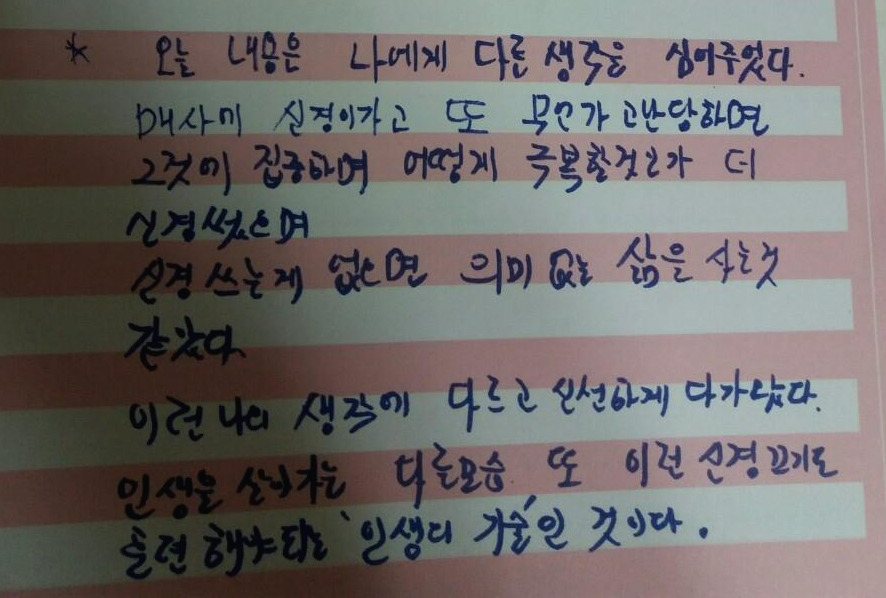 * 오늘 내용은 나에게 다른 생각을 심어주었다.
매사에 신경이가고 또 무언가 고난당하면
그것에 집중하며 어떻게 극복할것인가 더
신경썼으며
신경 쓰는게 없으면 의미 없는 삶을 사는것
같았다.
이런 나의 생각에 다르고 신선하게 다가왔다.
인생을 살아가는 다른모습 또 이런 신경끄기도
훈련해야되는 '인생의 기술'인 것이다.